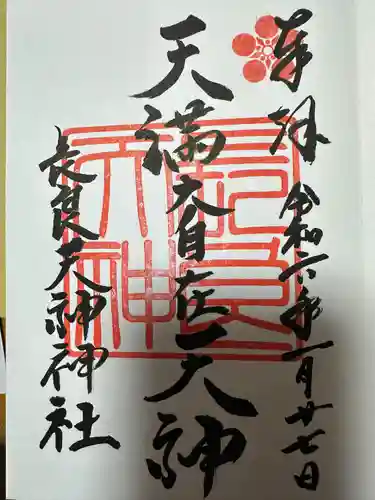 奉拝
令和六年一月廿七日
天満大自在天神
長良天神神社
長良
天神